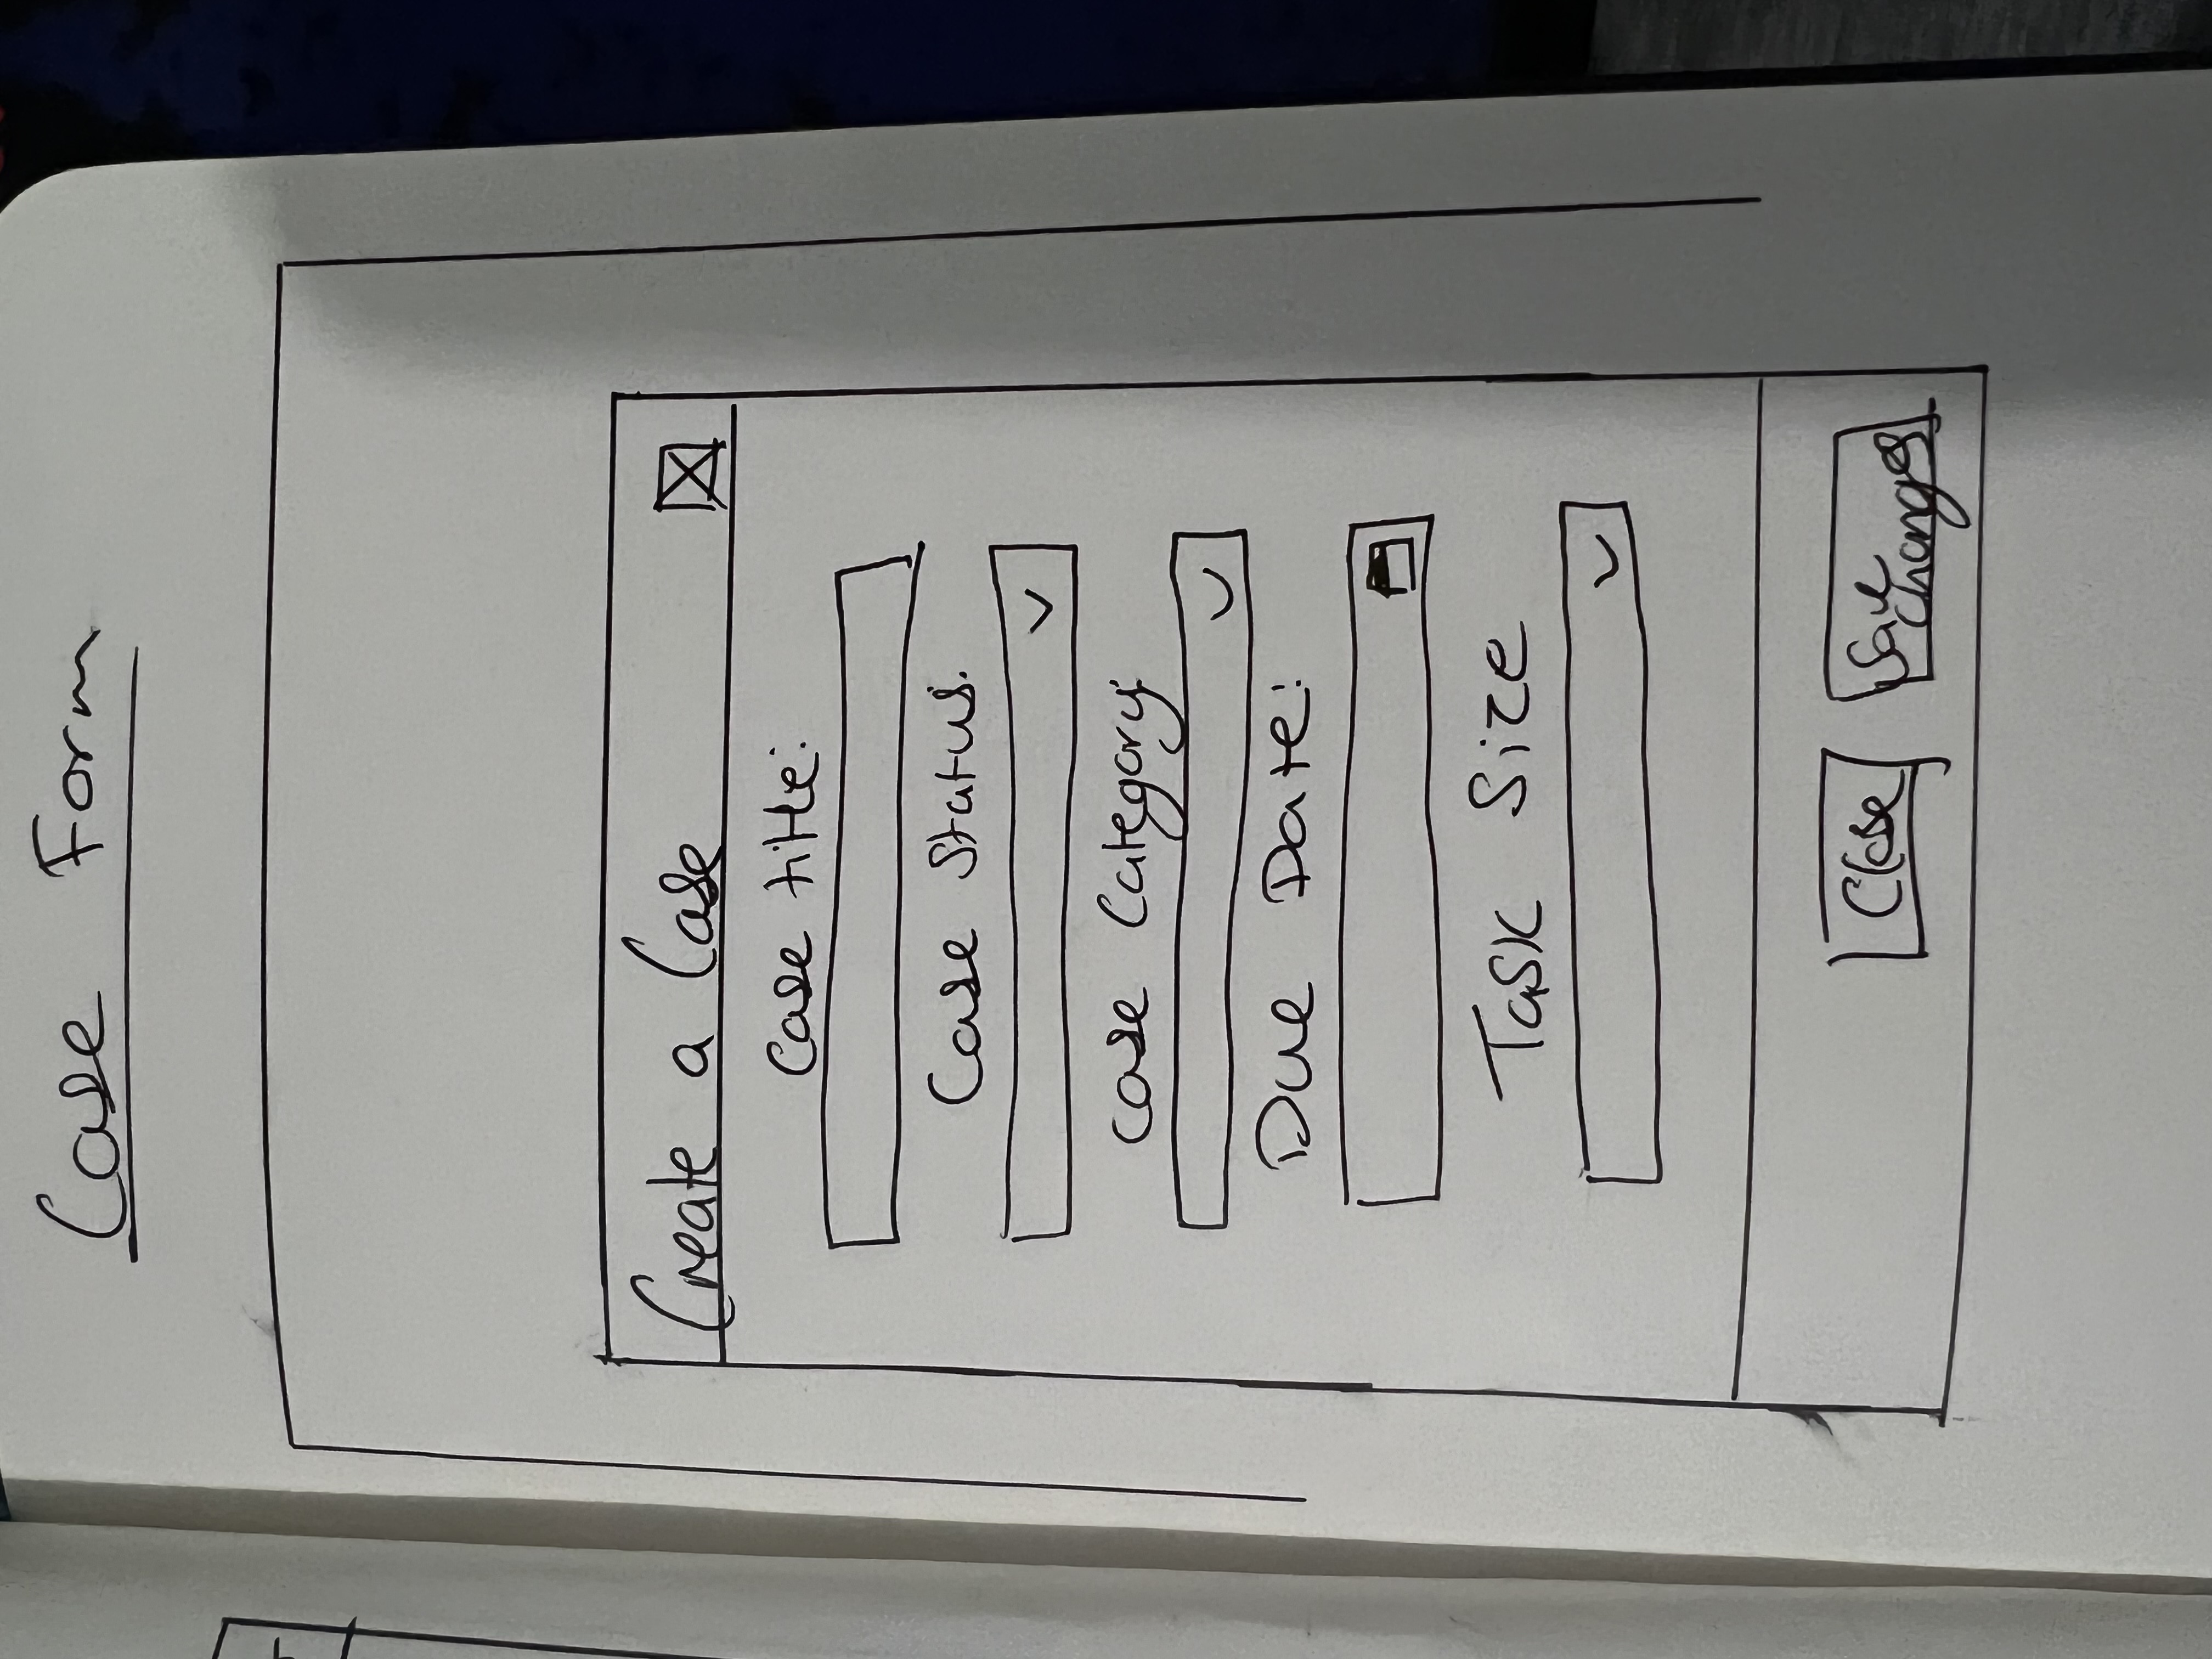 Case Form
Create a Case
Case title:
Case Status:
Case Category:
Due Date:
Task Size
Close
Save
changes